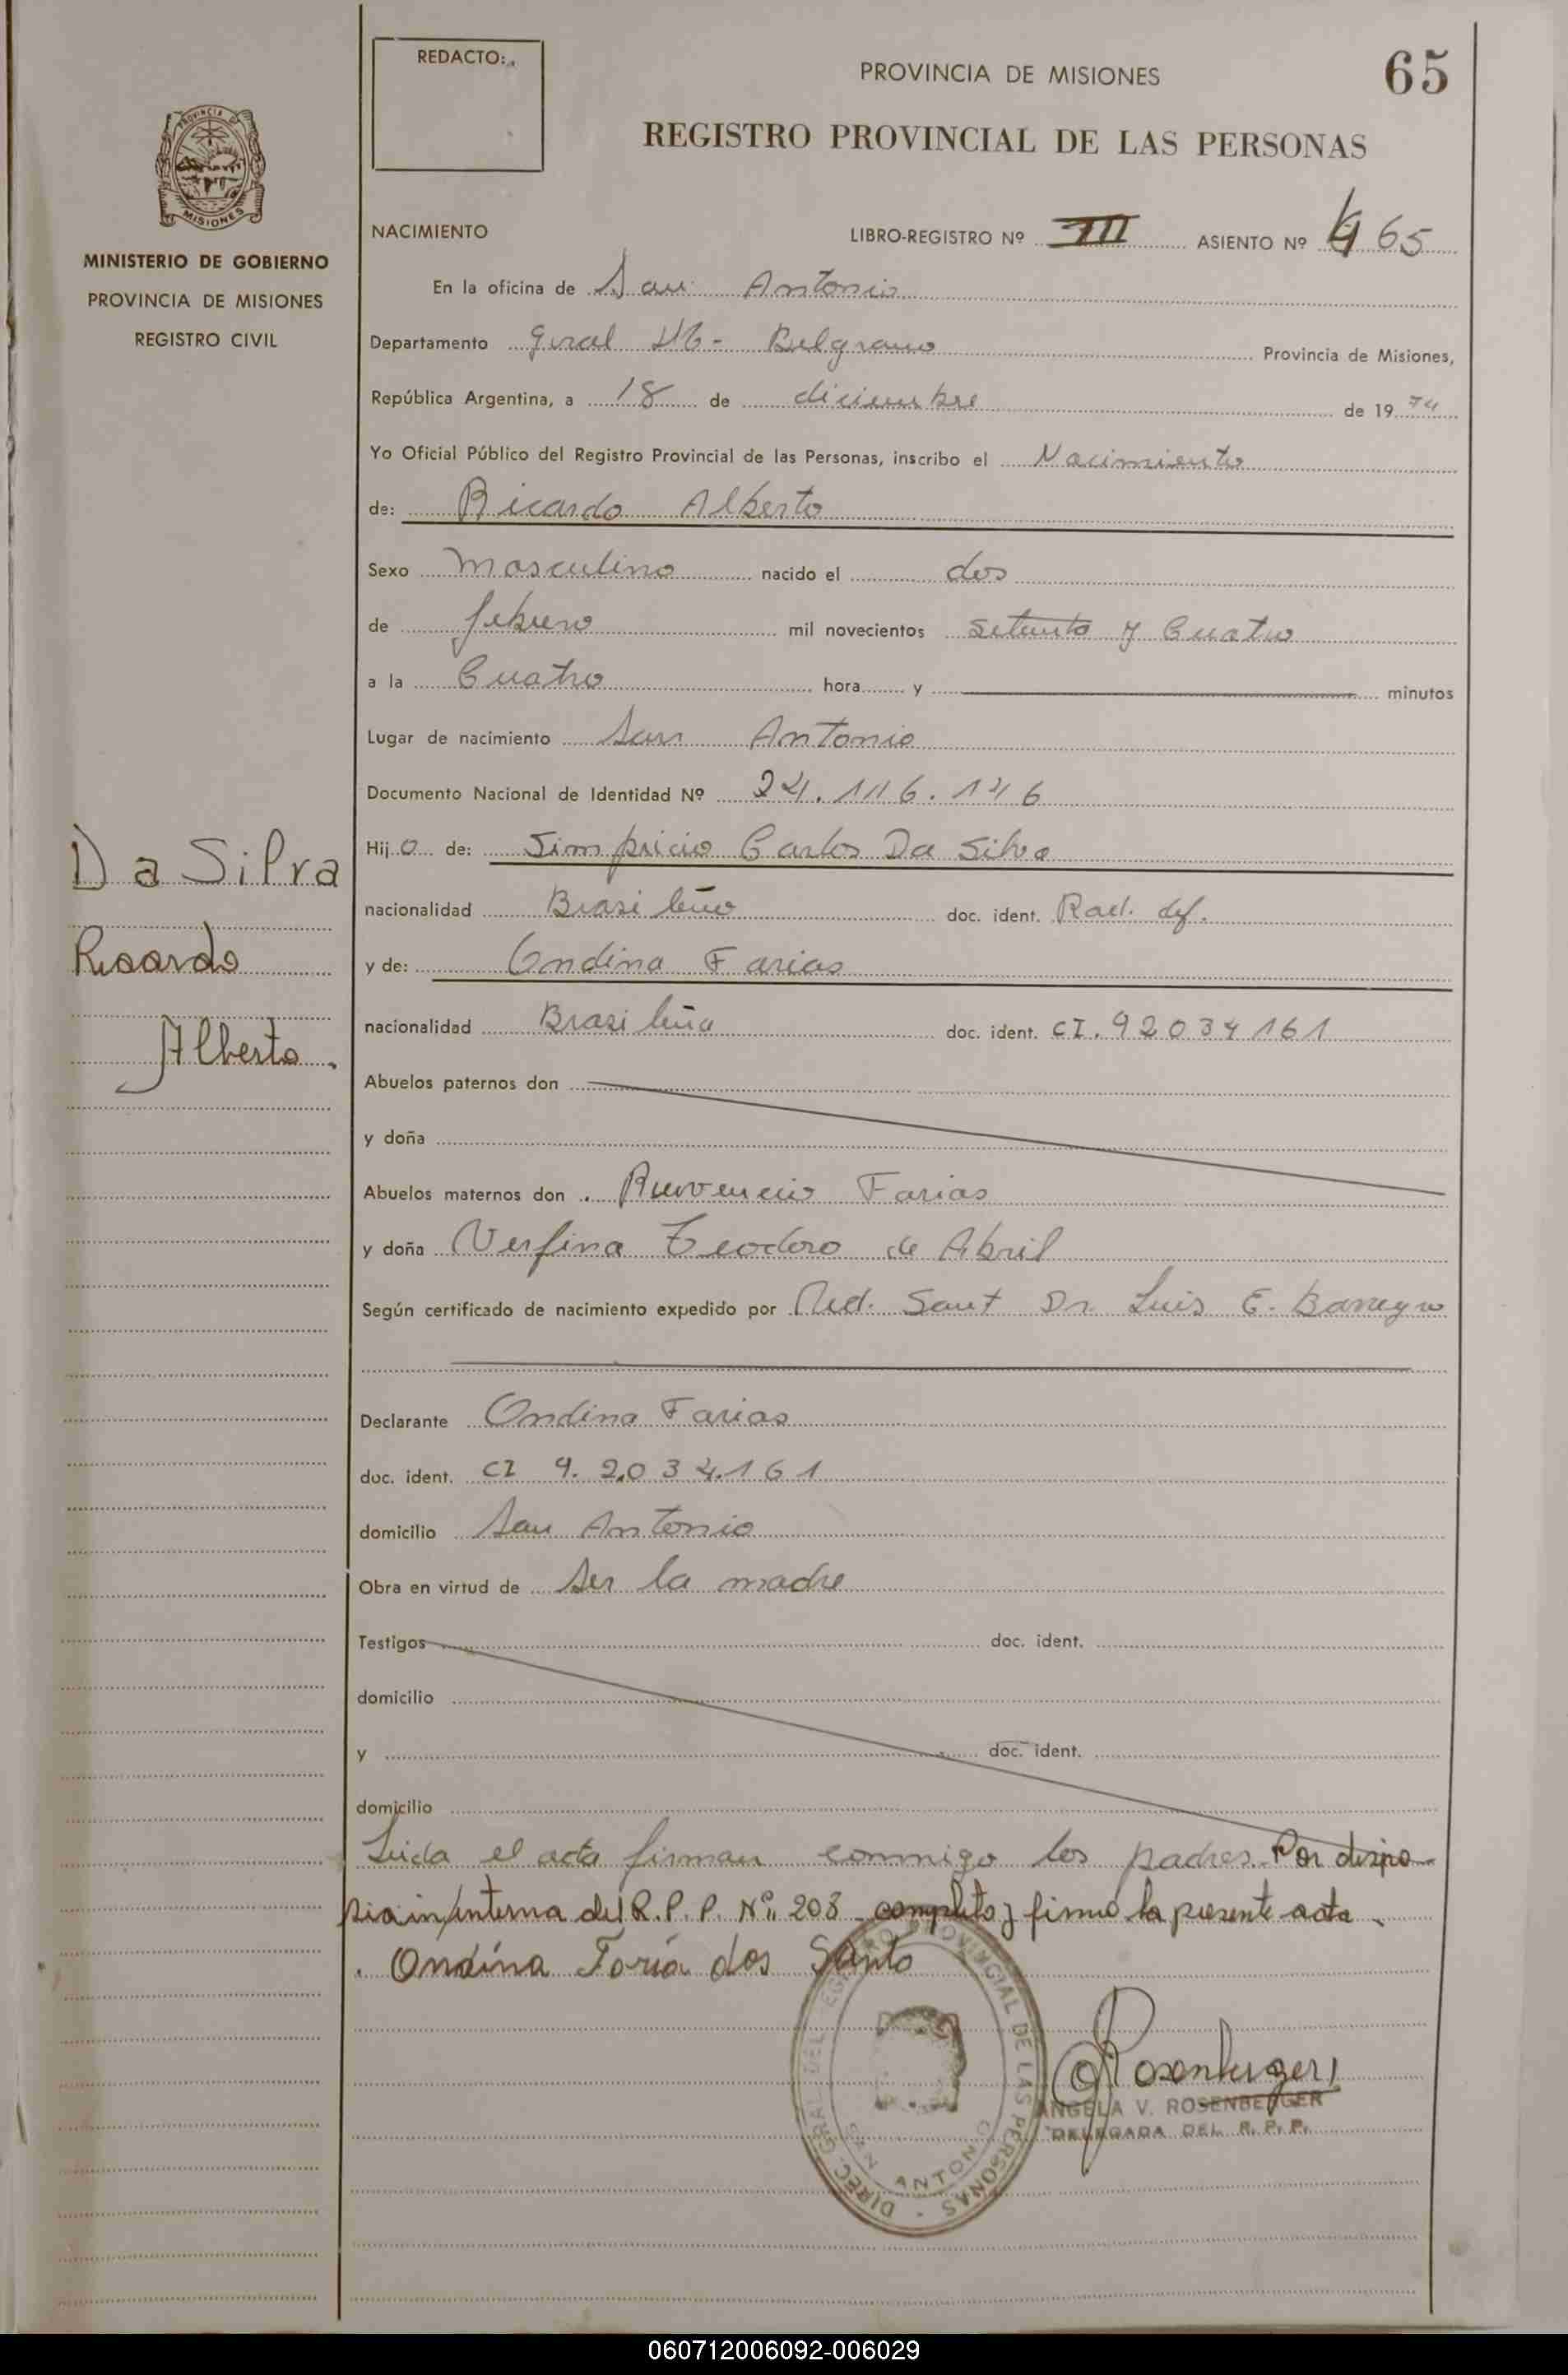 REDACTO:
PROVINCIA DE MISIONES
65
REGISTRO PROVINCIAL DE LAS PERSONAS
PROVINCIA DE
MISIONES
MINISTERIO DE GOBIERNO
PROVINCIA DE MISIONES
REGISTRO CIVIL
NACIMIENTO
LIBRO-REGISTRO Nº III ASIENTO Nº 65
En la oficina de San Antonio
Departamento Gral M- Belgrano Provincia de Misiones,
República Argentina, a 18 de diciembre de 1974
Yo Oficial Público del Registro Provincial de las Personas, inscribo el Nacimiento
de: Ricardo Alberto
Sexo Masculino nacido el dos
de febrero mil novecientos setenta y Cuatro
a la Cuatro hora y minutos
Lugar de nacimiento San Antonio
Documento Nacional de Identidad Nº 24.116.146
Hijo de: Simpricio Carlos Da Silva
nacionalidad Brasileño doc. ident. Rad. def.
y de: Ondina Farias
nacionalidad Brasileña doc. ident. CI. 92034161
Abuelos paternos don
y doña
Abuelos maternos don Farias
y doña Verfina Teodoro de Abril
Según certificado de nacimiento expedido por Med. Dr. Luis E. Barreyro
Declarante Ondina Farias
doc. ident. CI 9.2.034.161
domicilio San Antonio
Obra en virtud de ser la madre
Testigos doc. ident.
domicilio
y doc. ident.
domicilio
Leida el acta firman conmigo los padres. Por dispo-
sicion interna del R.P.P. Nº 208 completo y firmo la presente acta.
Ondína Faria dos Santo
Da Silva
Ricardo
Alberto.
DIREC. GRAL. DEL REGISTRO PROVINCIAL DE LAS PERSONAS
SAN ANTONIO
Rosenberger
ANGELA V. ROSENBERGER
DELEGADA DEL R. P. P.
060712006092-006029